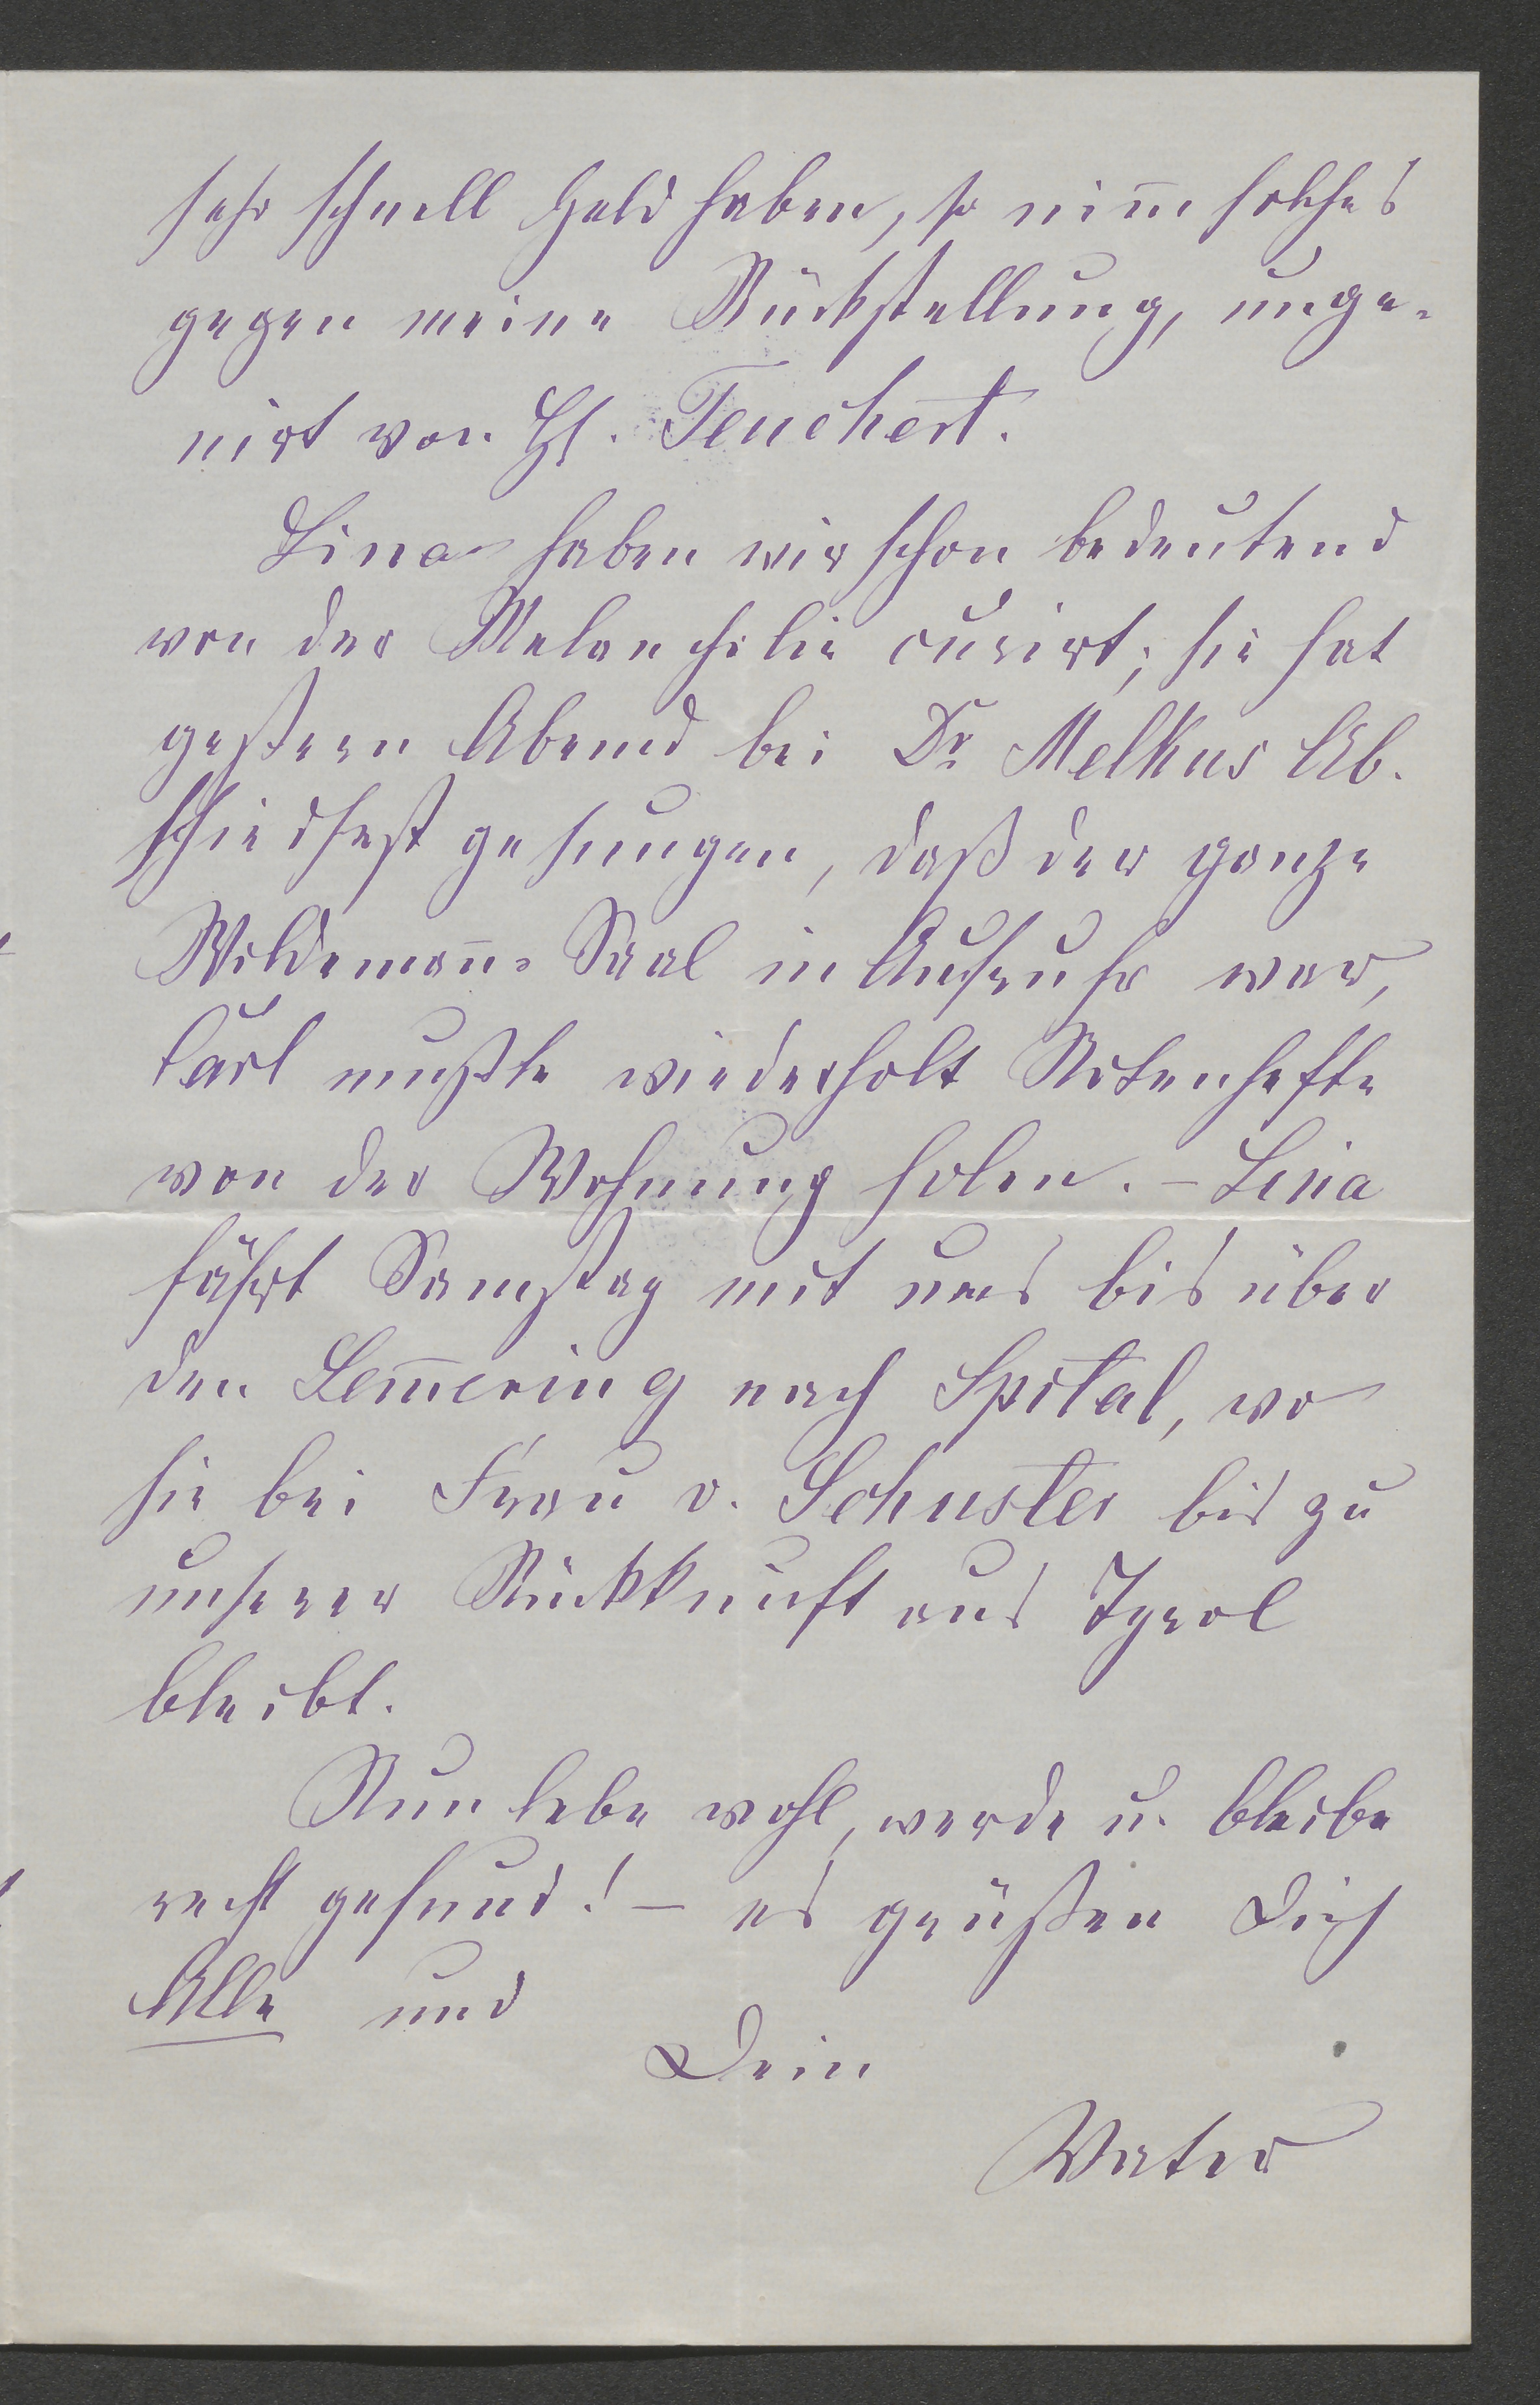 sehr schnell Geld haben, so nim̅ solches
gegen meine Rückstellung, unge-
nirt von H. Teuchert.
Lina haben wir schon bedeutend
von der Melancholie curirt; sie hat
gestern Abend bei Dr Melkus Ab-
schiedsfest gesungen, daß der ganze
Wildeman̅-Saal in Aufruhr war,
Carl mußte wiederholt Notenhefte
von der Wohnung holen. – Lina
fährt Samstag mit uns bis über
den Sem̅ering nach Spital, wo
sie bei Frau v. Schuster bis zu
unserer Rückkunft aus Tyrol
bleibt.
Nun lebe wohl, werde u. bleibe
recht gesund! – es grüßen Dich
Alle und
Dein
Vater